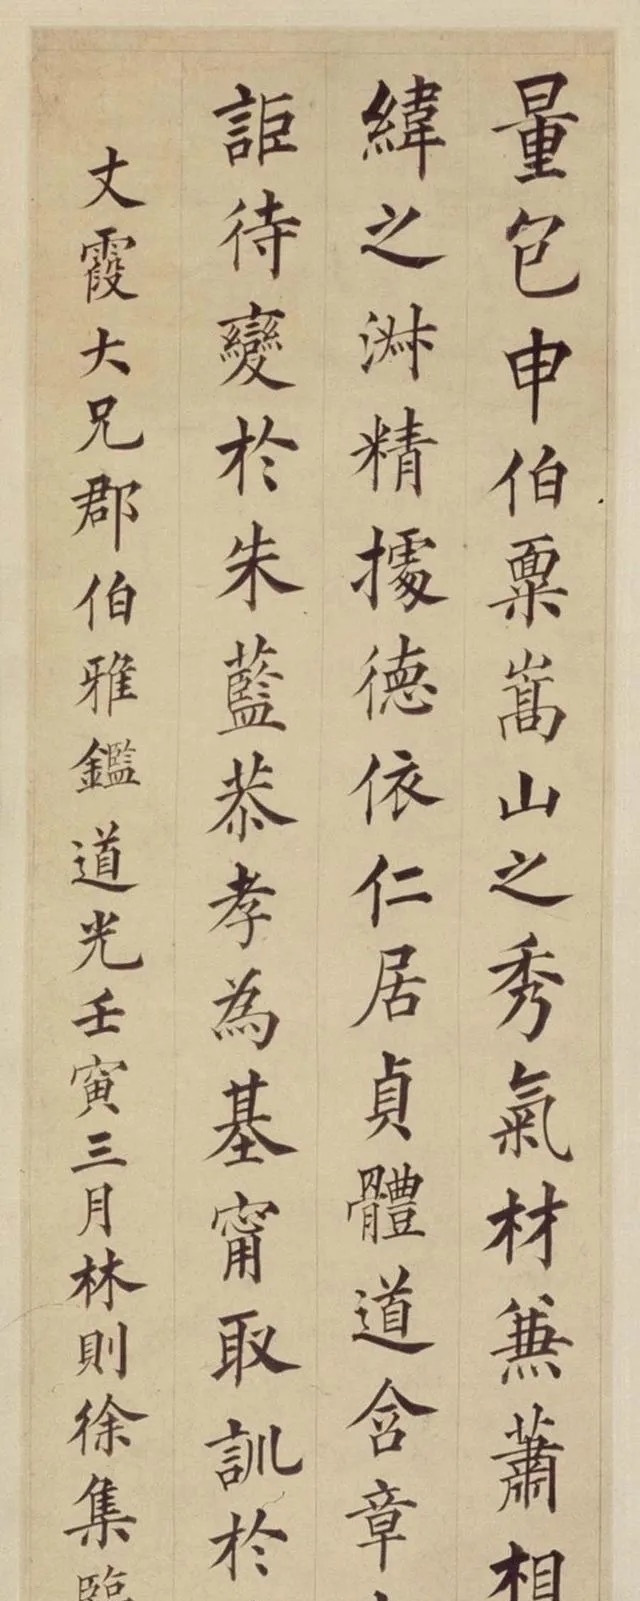 量包申伯稟嵩山之秀氣材兼蕭相
緯之淋精據德依仁居貞體道含章
詎待變於朱藍恭孝為基甯取訓於
丈霞大兄郡伯雅鑑道光壬寅三月林則徐集臨